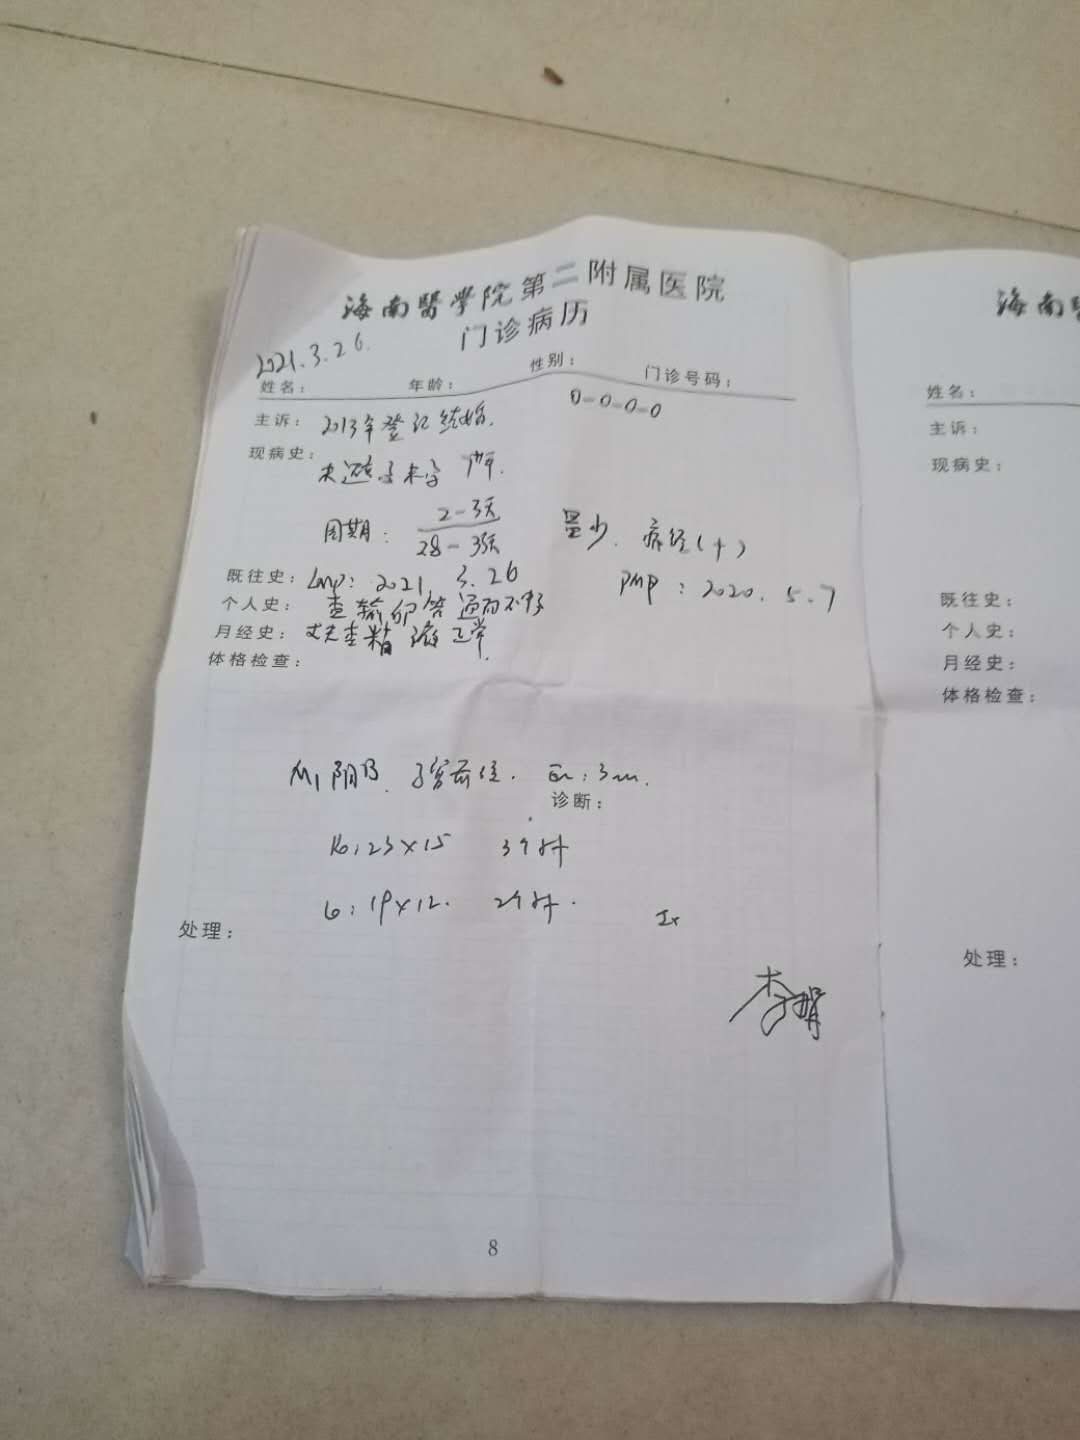 海南醫學院第二附属医院
门诊病历
2021.3.26.
姓名： 年龄： 性别： 门诊号码：
0-0-0-0
主诉： 2013年登记结婚.
现病史：
未避孕未孕
周期： 2-3天 / 28-35天 量少. 痛经(+)
既往史： Lmp: 2021. 3.26 PMP : 2020. 5.7
个人史： 查输卵管通而不畅
月经史： 丈夫查精液正常.
体格检查：
阴B. 子宫前位. En: 3mm.
诊断：
Ro: 23×15 3个卵
Lo: 19×12. 2个卵.
处理：
李娟
8
海南醫
姓名：
主诉：
现病史：
既往史：
个人史：
月经史：
体格检查：
处理：